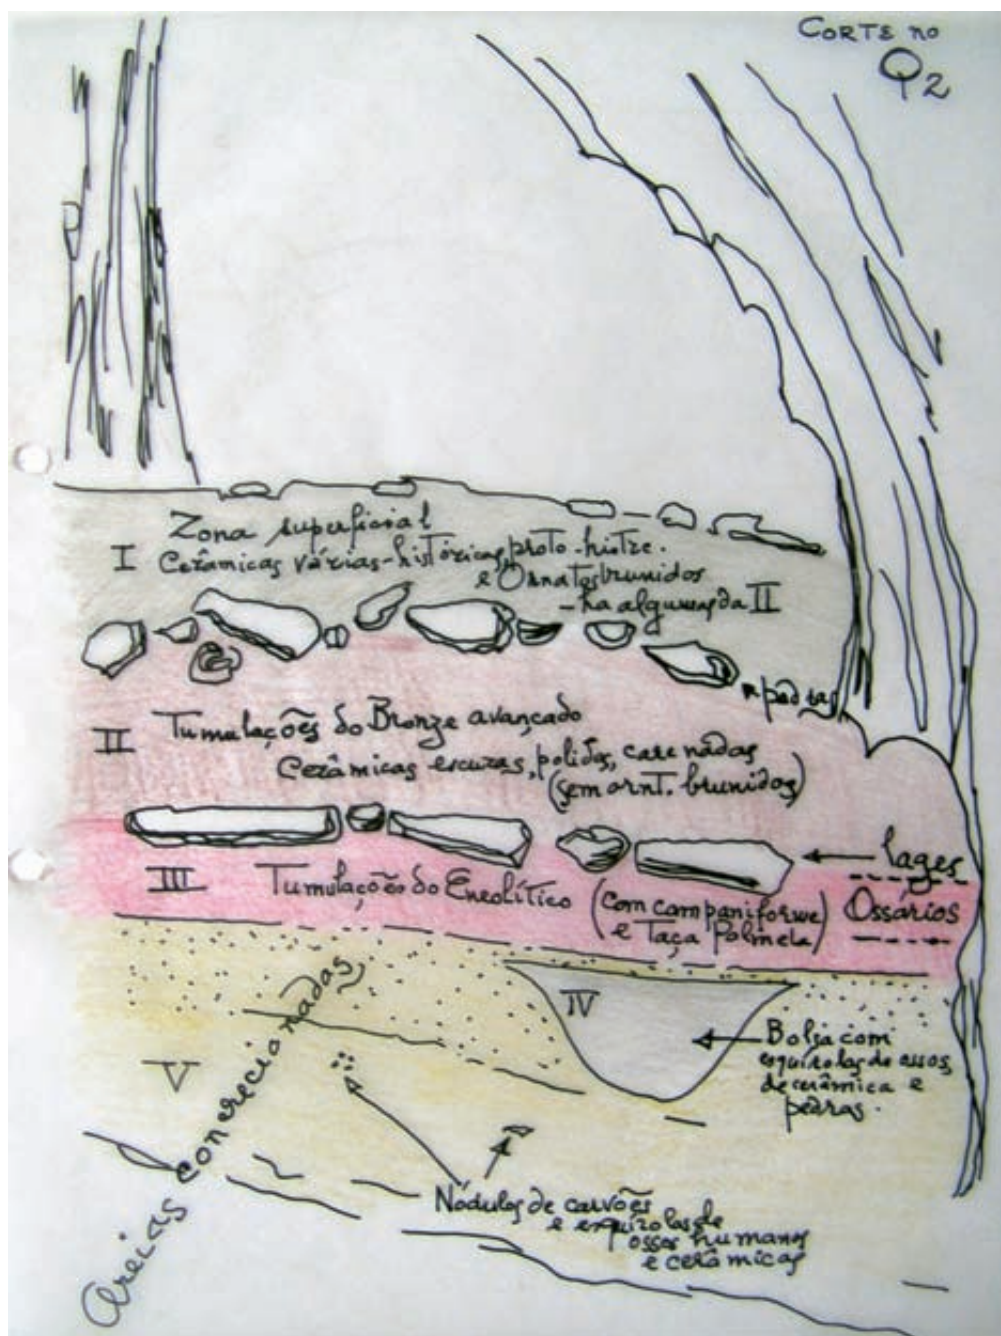 CORTE no
Q2
Zona superficial
I Cerâmicas várias-históricas, proto-histre.
e Ornatos brunidos
- ha algumas da II
pedras
II Tumulações do Bronze avançado
Cerâmicas escuras, polidas, carenadas
(sem ornt. brunidos)
lages
III Tumulações do Eneolítico (com campaniforme
e Taça Palmela)
Ossários
IV
Bolsa com
esquirolas de ossos,
de cerâmica e
pedras.
V
Areias concrecionadas
Nódulos de carvões
e esquirolas de
ossos humanos
e cerâmicas